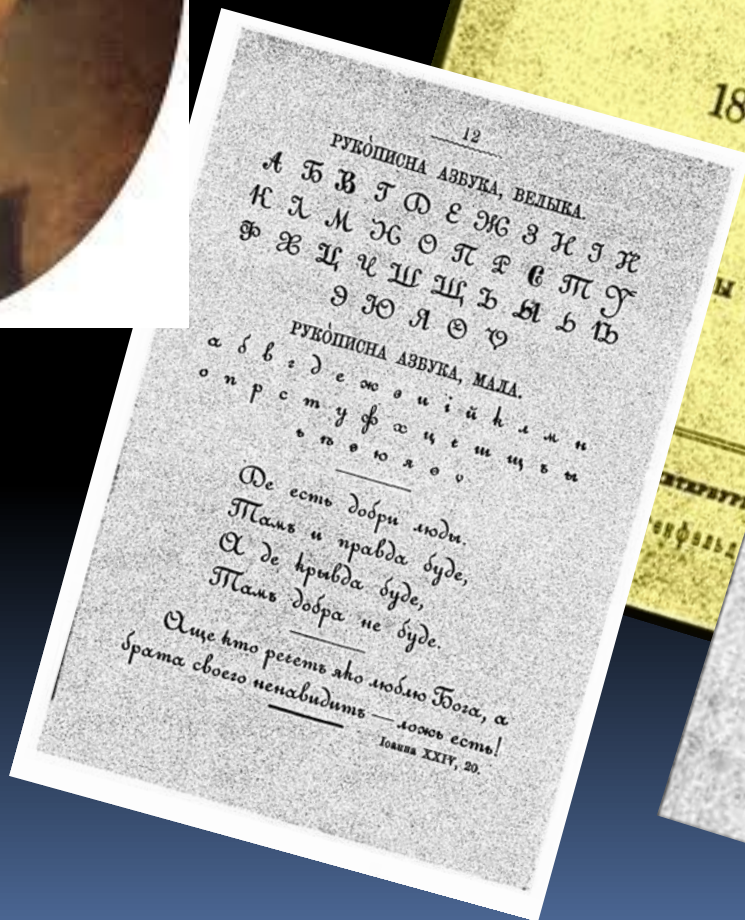 12
РУКО̀ПИСНА АЗБУКА, ВЕЛЫКА.
А Б В Г Д Е Ж З И І Й
К Л М Н О П Р С Т У
Ф Х Ц Ч Ш Щ Ъ Ы Ь Ѣ
Э Ю Я Ѳ Ѵ
РУКО̀ПИСНА АЗБУКА, МАЛА.
а б в г д е ж з и і й к л м н
о п р с т у ф х ц ч ш щ ъ ы
ь ѣ э ю я ѳ ѵ
Де есть добри люды.
Тамъ и правда буде,
А де крывда буде,
Тамъ добра не буде.
Аще кто речетъ яко люблю Бога, а
брата своего ненавидитъ — ложь есть!
Іоанна XXIV, 20.
18
ы